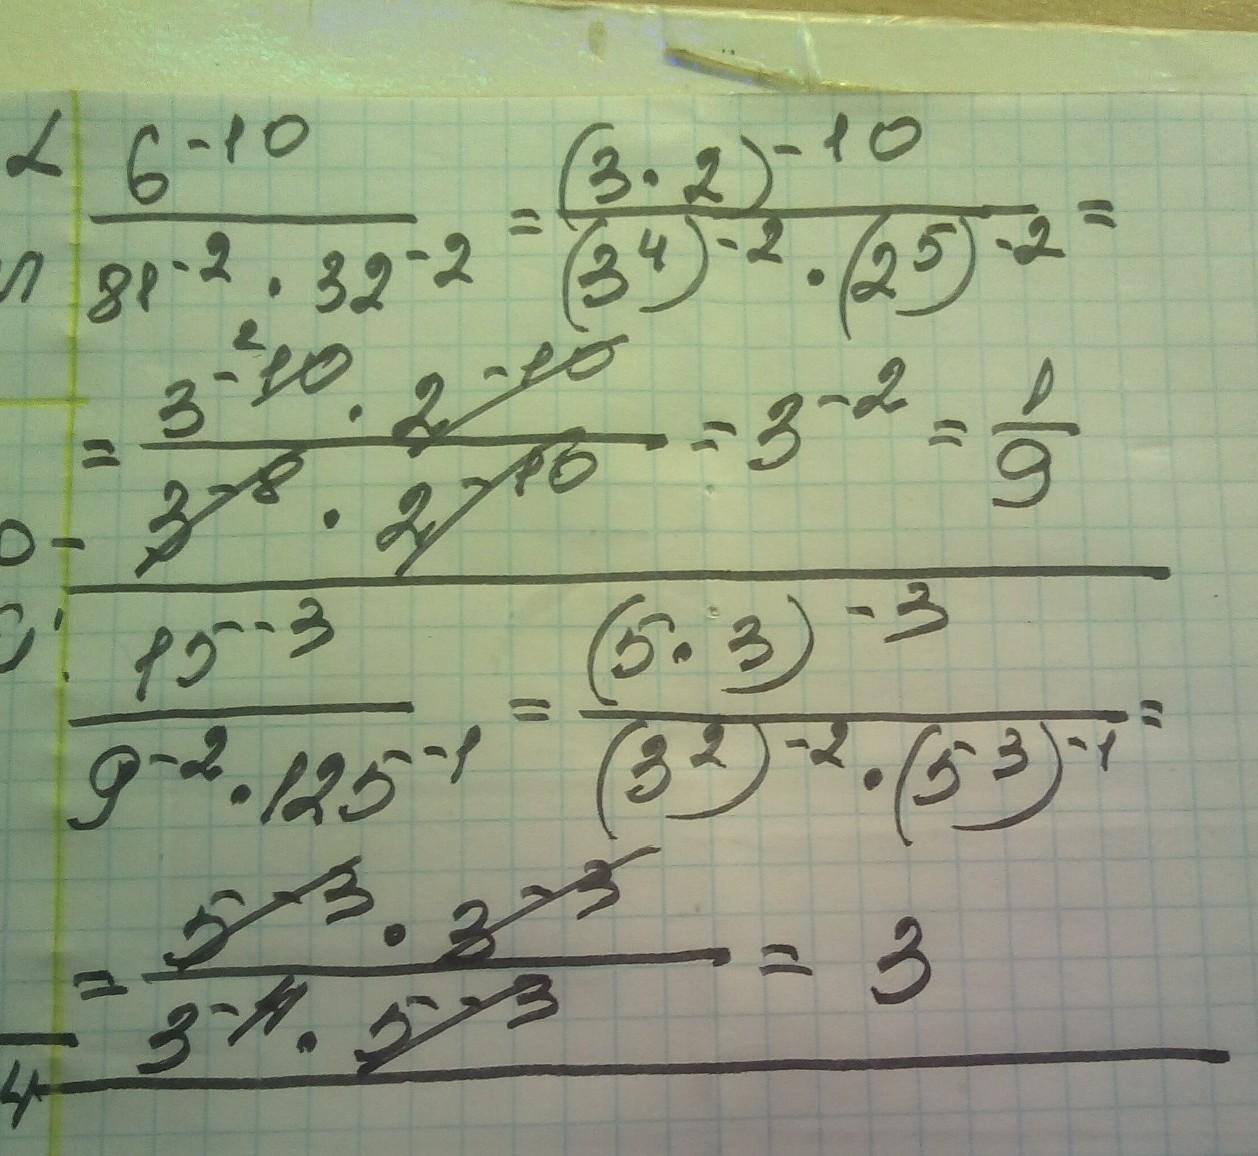 6^-10 / (81^-2 · 32^-2) = (3 · 2)^-10 / ((3^4)^-2 · (2^5)^-2) =
= (3^-10 · 2^-10) / (3^-8 · 2^-10) = 3^-2 = 1/9
15^-3 / (9^-2 · 125^-1) = (5 · 3)^-3 / ((3^2)^-2 · (5^3)^-1) =
= (5^-3 · 3^-3) / (3^-4 · 5^-3) = 3
4